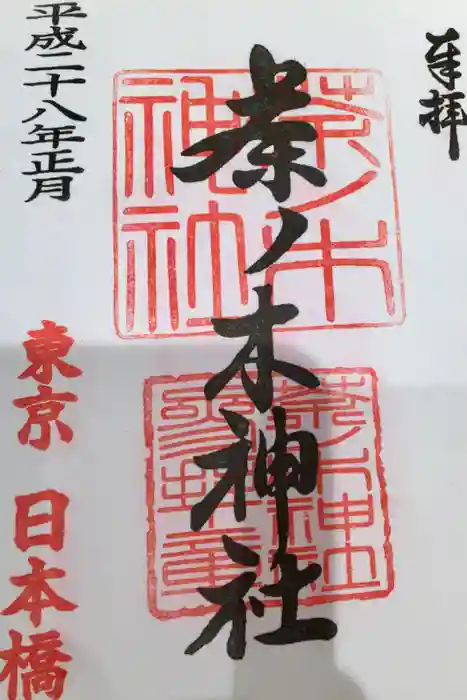 奉拝
茶ノ木神社
茶ノ木
神社
茶ノ木神社
平成二十八年正月
東京 日本橋